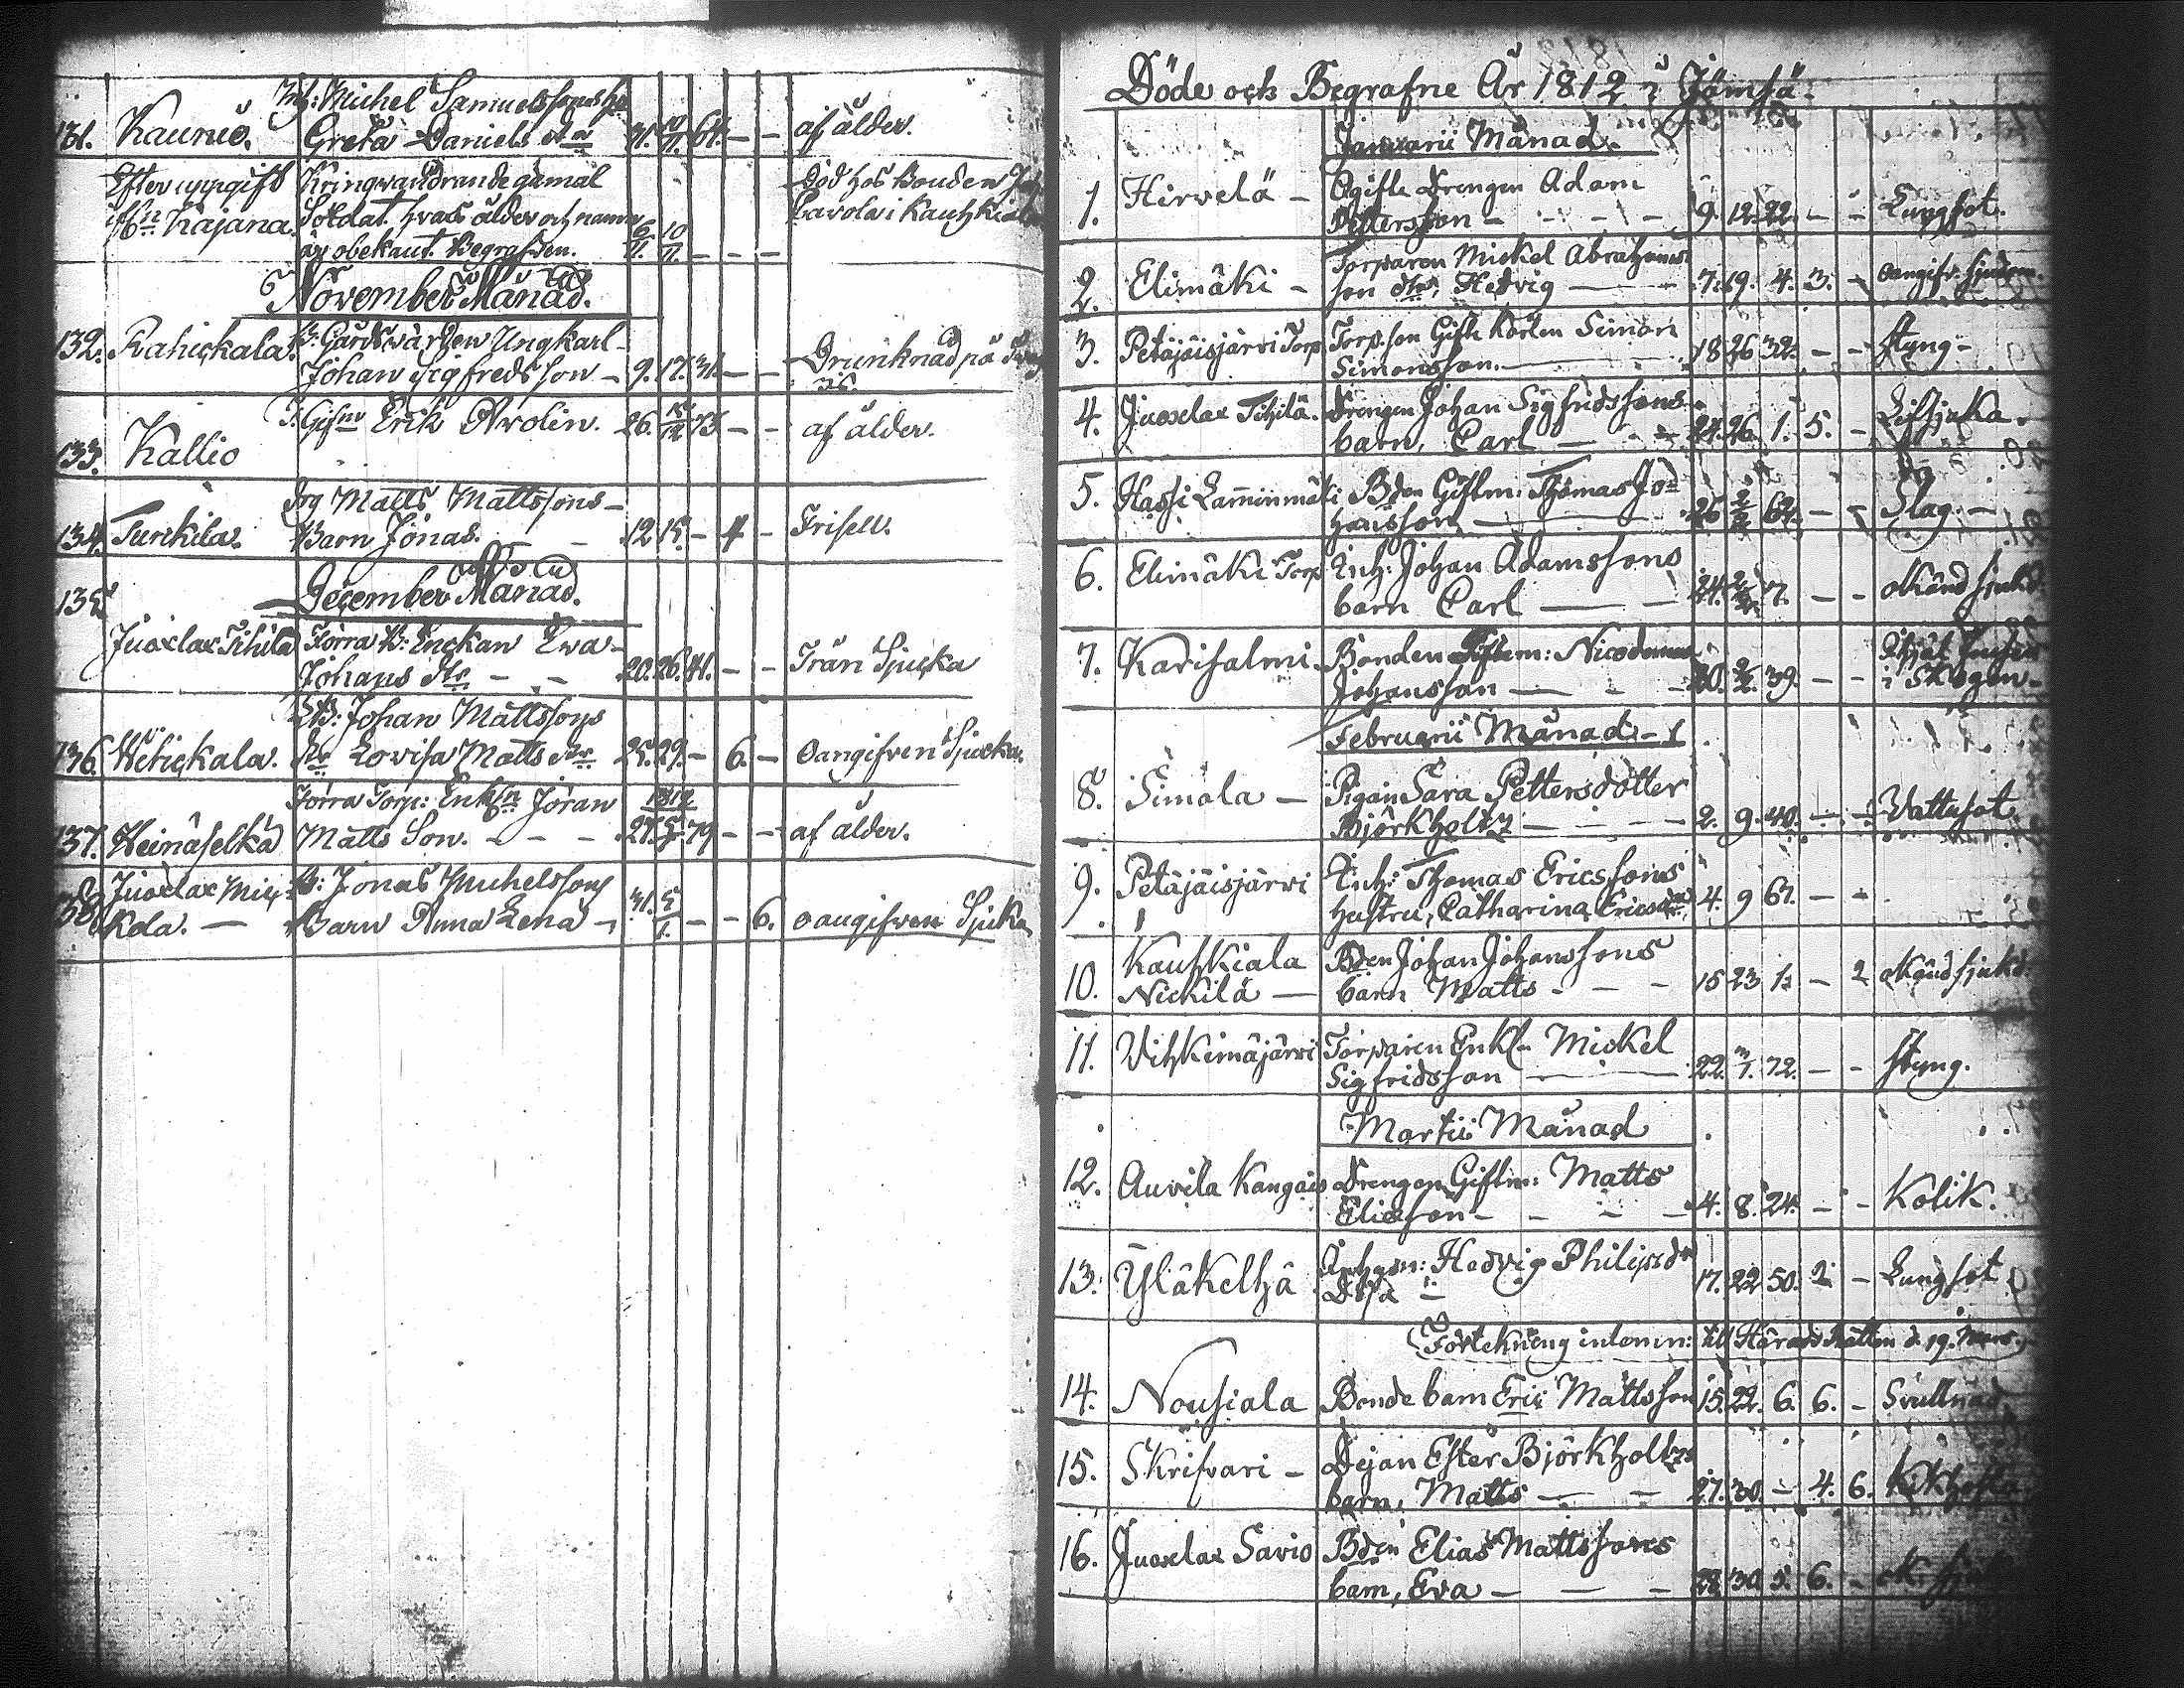 Inh: Michel Samuelssons hu
131. Kaunio. Greta Daniels dtr 31. 10/11. 64. - - af ålder.
Efter uppgift Kringvandrande gamal Död hos Bonden Joh:
ifrn Kajana. Soldat hvars ålder och namn Carola i Kautzkiala
är obekant. Begrafven. 6/11. 10/11. - - -
November Månad.
132. Rahickala. B: Gårdsvärden Ungkarl
Johan Sigfredsson - 9. 17. 31. - - Drunknad på
133. Kallio I: Gifm Erik Avolin. 26. 73 - - af ålder.
Drg Matts Mattssons
134. Turckila. Barn Jonas. - - 12 15. - 4 - Frisell.
135. December Månad.
Juoxlax Tihilä Förra B: Enckan Ewa
Johans dtr - - 20. 26. 41. - - Trån Sjucka
Bd: Johan Mattssons
136. Wihickala. dtr Lovisa Matts dtr 25. 29. - 6. - Oangifven Sjucka.
Förra Torp: Enkln Jöran 1812
137. Heinäselkä Matts Son. - - - 27. 5/1. 79 - - af ålder.
138. Juoxlax Mick- B: Jonas Michelssons
kola. - Barn Anna Lena - 31. 5/1. - - 6. oangifven Sjuka
Döde och Begrafne År 1812 i Jämsä.
Januarii Månad.
1. Hirvelä - Ogifte Drengen Adam
Pettersson - - - - 9. 12. 22. - - Lungsot.
2. Elimäki - Torparen Mickel Abrahams-
son dtr, Hedvig - 7. 19. 4. 3. - Oangifv. sjukdom.
3. Petäjäisjärvi Torp Torp.son Gifte Karlen Simon
Simonsson. - 18 26 32. - - Styng -
4. Juoxlax Tihilä. Drengen Johan Sigfridssons
barn, Carl - - - 24. 26. 1. 5. - Lifsjuka.
5. Hassi Lamminmäki Bden Giftm: Thomas Jo-
hansson - 26 2/2 62. - - Slag. -
6. Elimäki Torp Inh: Johan Adamssons
barn Carl - - 24. 2/2. 7. - - okänd sjukd.
7. Karisalmi - Bonden Giftem: Nicodemus
Johansson - - - 30. 2/2. 39. - -
i Skogen -
Februarii Månad -
8. Simola - Pigan Sara Pettersdotter
Björkholtz - - - - 2. 9. 40. - - Vattusot
9. Petäjäisjärvi Inh: Thomas Ericssons
hustru, Catharina Ericsdtr 4. 9 67. - -
10. Kautzkiala Bden Johan Johanssons
Nickilä - barn Matts - - - 15 23 - 2 okänd sjukd.
11. Vihkimäjärvi Torparen Enkl- Mickel
Sigfridsson - - 22. 72. - - Styng.
Martii Månad
12. Auvila Kangais Drengen Giftm: Matts
Eliasson - - - - 4. 8. 24. - - Kolik.
13. Yläkelhä Hedvig Philipsdr
- 17. 22 50. 2 - Lungsot
Förtekning inlemn: till Härads Rätten d. 19. Mars.
14. Nousiala Bonde barn Eric Mattsson 15. 22. 6. 6. - Svullnad.
15. Skrifvari - Dejan Ester Björkholtzs
barn, Matts - - 27. 30. - 4. 6. Kikhosta
16. Juoxlax Savio Bden Elias Mattssons
barn, Eva - - - 28 30 5. 6. -